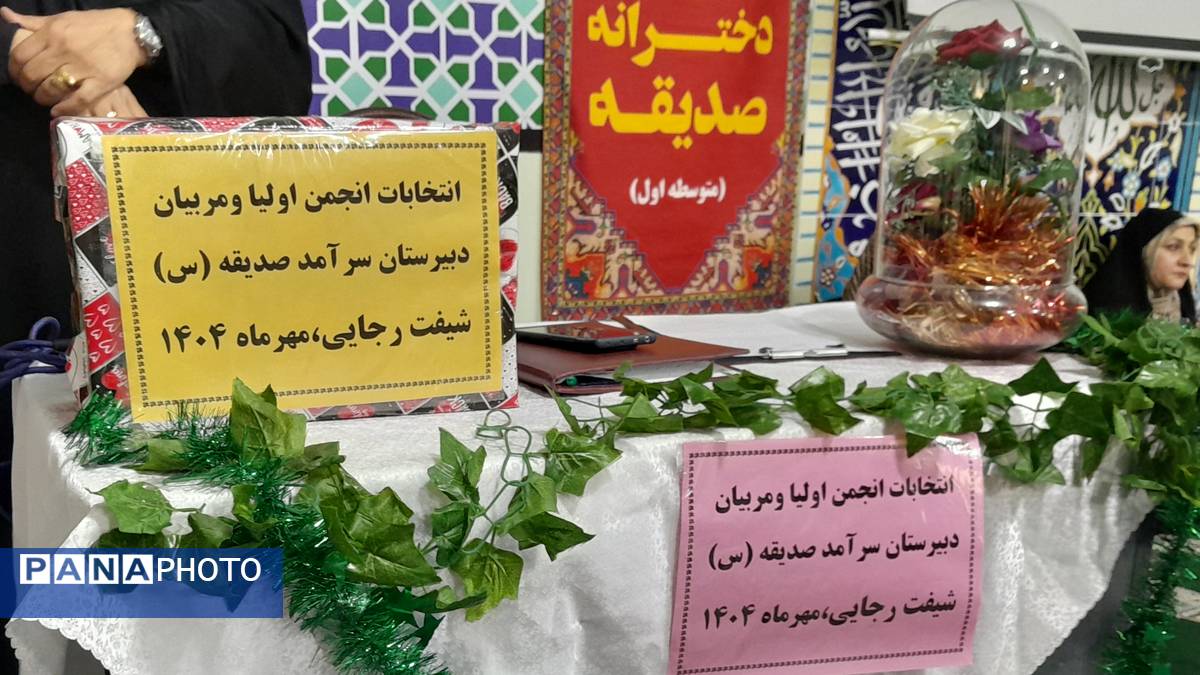 دخترانه
صدیقه
(متوسطه اول)
انتخابات انجمن اولیا ومربیان
دبیرستان سرآمد صدیقه (س)
شیفت رجایی،مهرماه ۱۴۰۴
انتخابات انجمن اولیا ومربیان
دبیرستان سرآمد صدیقه (س)
شیفت رجایی،مهرماه ۱۴۰۴
PANAPHOTO